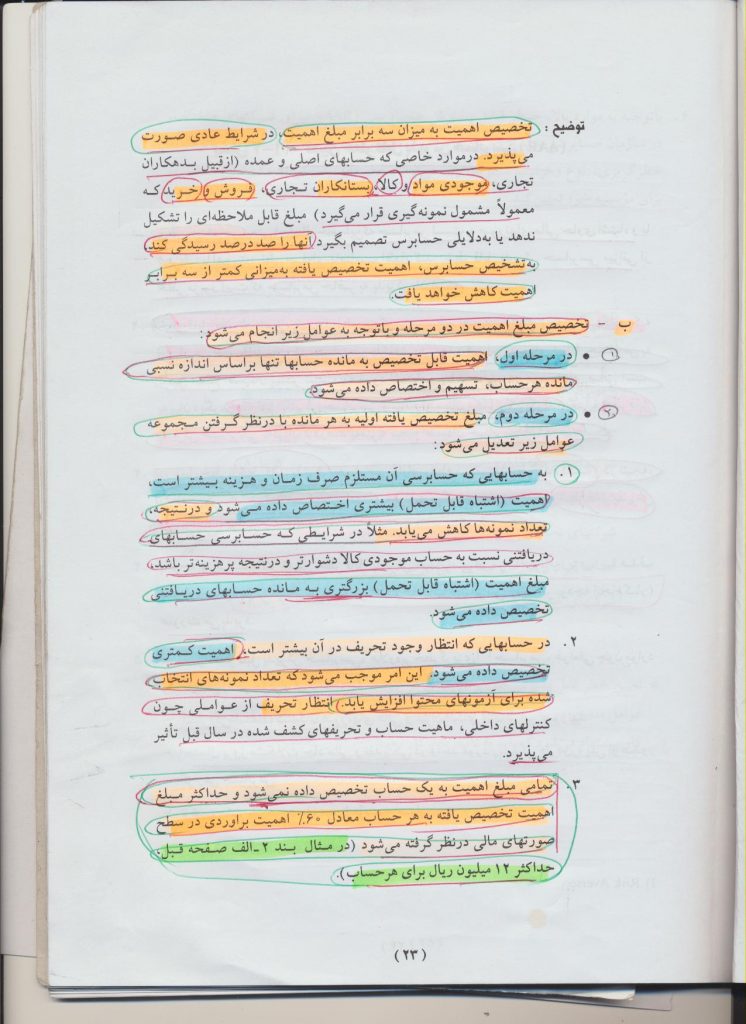 توضیح : تخصیص اهمیت به میزان سه برابر مبلغ اهمیت، در شرایط عادی صورت
می‌پذیرد. درموارد خاصی که حسابهای اصلی و عمده (ازقبیل بدهکاران
تجاری، موجودی مواد و کالا، بستانکاران تجاری، فروش و خرید که
معمولاً مشمول نمونه‌گیری قرار می‌گیرد) مبلغ قابل ملاحظه‌ای را تشکیل
ندهد یا به‌دلایلی حسابرس تصمیم بگیرد آنها را صد درصد رسیدگی کند،
به‌تشخیص حسابرس، اهمیت تخصیص یافته به‌میزانی کمتر از سه برابر
اهمیت کاهش خواهد یافت.
ب - تخصیص مبلغ اهمیت در دو مرحله و باتوجه به عوامل زیر انجام می‌شود:
۱ • در مرحله اول، اهمیت قابل تخصیص به مانده حسابها تنها براساس اندازه نسبی
مانده هرحساب، تسهیم و اختصاص داده می‌شود.
۲ • در مرحله دوم، مبلغ تخصیص یافته اولیه به هر مانده با درنظر گرفتن مجموعه
عوامل زیر تعدیل می‌شود:
۱. به حسابهایی که حسابرسی آن مستلزم صرف زمان و هزینه بیشتر است،
اهمیت (اشتباه قابل تحمل) بیشتری اختصاص داده می‌شود و درنتیجه،
تعداد نمونه‌ها کاهش می‌یابد. مثلاً در شرایطی که حسابرسی حسابهای
دریافتنی نسبت به حساب موجودی کالا دشوارتر و درنتیجه پرهزینه‌تر باشد،
مبلغ اهمیت (اشتباه قابل تحمل) بزرگتری به مانده حسابهای دریافتنی
تخصیص داده می‌شود.
۲. در حسابهایی که انتظار وجود تحریف در آن بیشتر است، اهمیت کمتری
تخصیص داده می‌شود. این امر موجب می‌شود که تعداد نمونه‌های انتخاب
شده برای آزمونهای محتوا افزایش یابد. انتظار تحریف از عواملی چون
کنترلهای داخلی، ماهیت حساب و تحریفهای کشف شده در سال قبل تأثیر
می‌پذیرد.
۳. تمامی مبلغ اهمیت به یک حساب تخصیص داده نمی‌شود و حداکثر مبلغ
اهمیت تخصیص یافته به هر حساب معادل ۶۰٪ اهمیت براوردی در سطح
صورتهای مالی درنظر گرفته می‌شود (در مثال بند ۲ـالف صفحه قبل،
حداکثر ۱۲ میلیون ریال برای هرحساب).
(۲۳)